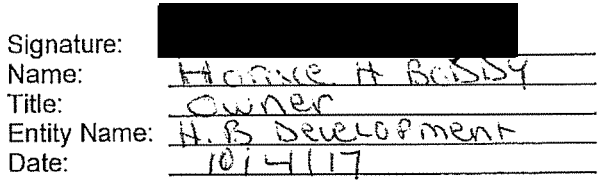 Signature:
Name: H BOBBY
Title: OWNER
Entity Name: H.B DEVELOPMENT
Date: 10/4/17